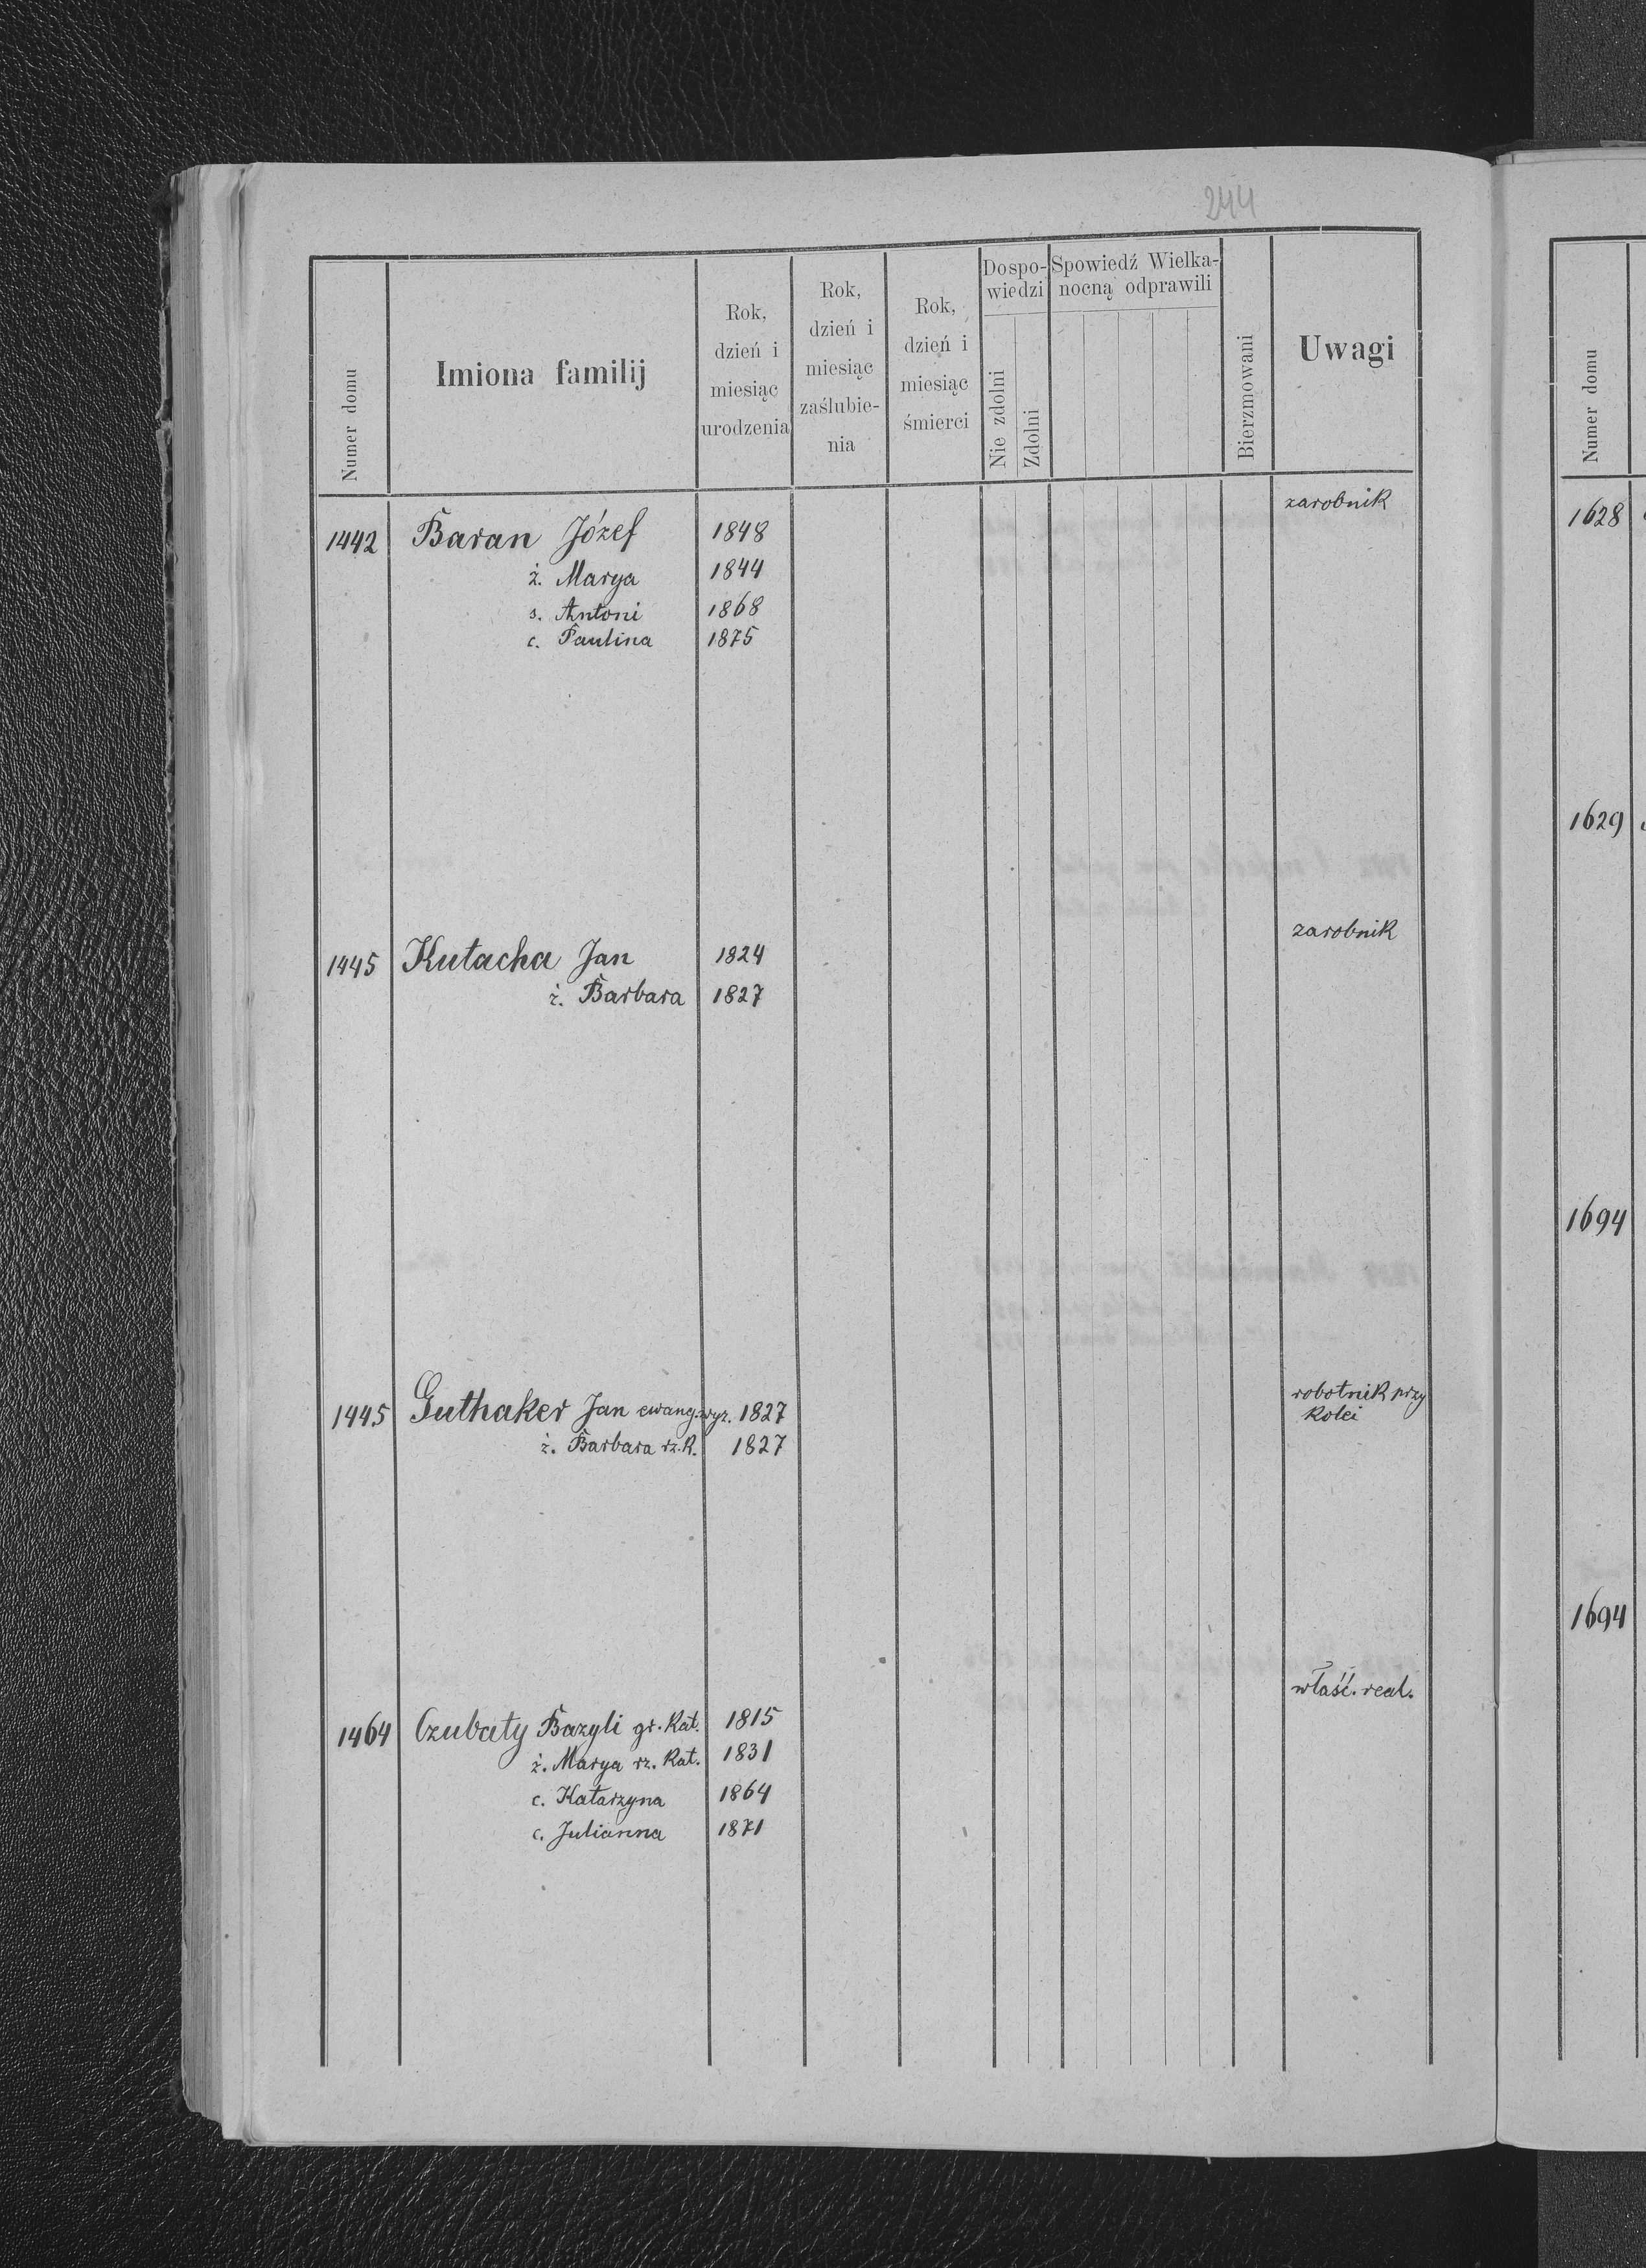 244
Numer domu
Imiona familij
Rok, dzień i miesiąc urodzenia
Rok, dzień i miesiąc zaślubie-nia
Rok, dzień i miesiąc śmierci
Dospo-wiedzi
Nie zdolni
Zdolni
Spowiedź Wielka-nocną odprawili
Bierzmowani
Uwagi
1442 Baran Józef 1848 zarobnik
ż. Marya 1844
s. Antoni 1868
c. Paulina 1875
1445 Kutacha Jan 1824 zarobnik
ż. Barbara 1827
1445 Guthaker Jan ewang. wyz. 1827 robotnik przy
kolei
ż. Barbara rz. k. 1827
1464 Czubaty Bazyli gr. kat. 1815 właść. real.
ż. Marya rz. kat. 1831
c. Katarzyna 1864
c. Julianna 1871
Numer domu
1628
1629
1694
1694